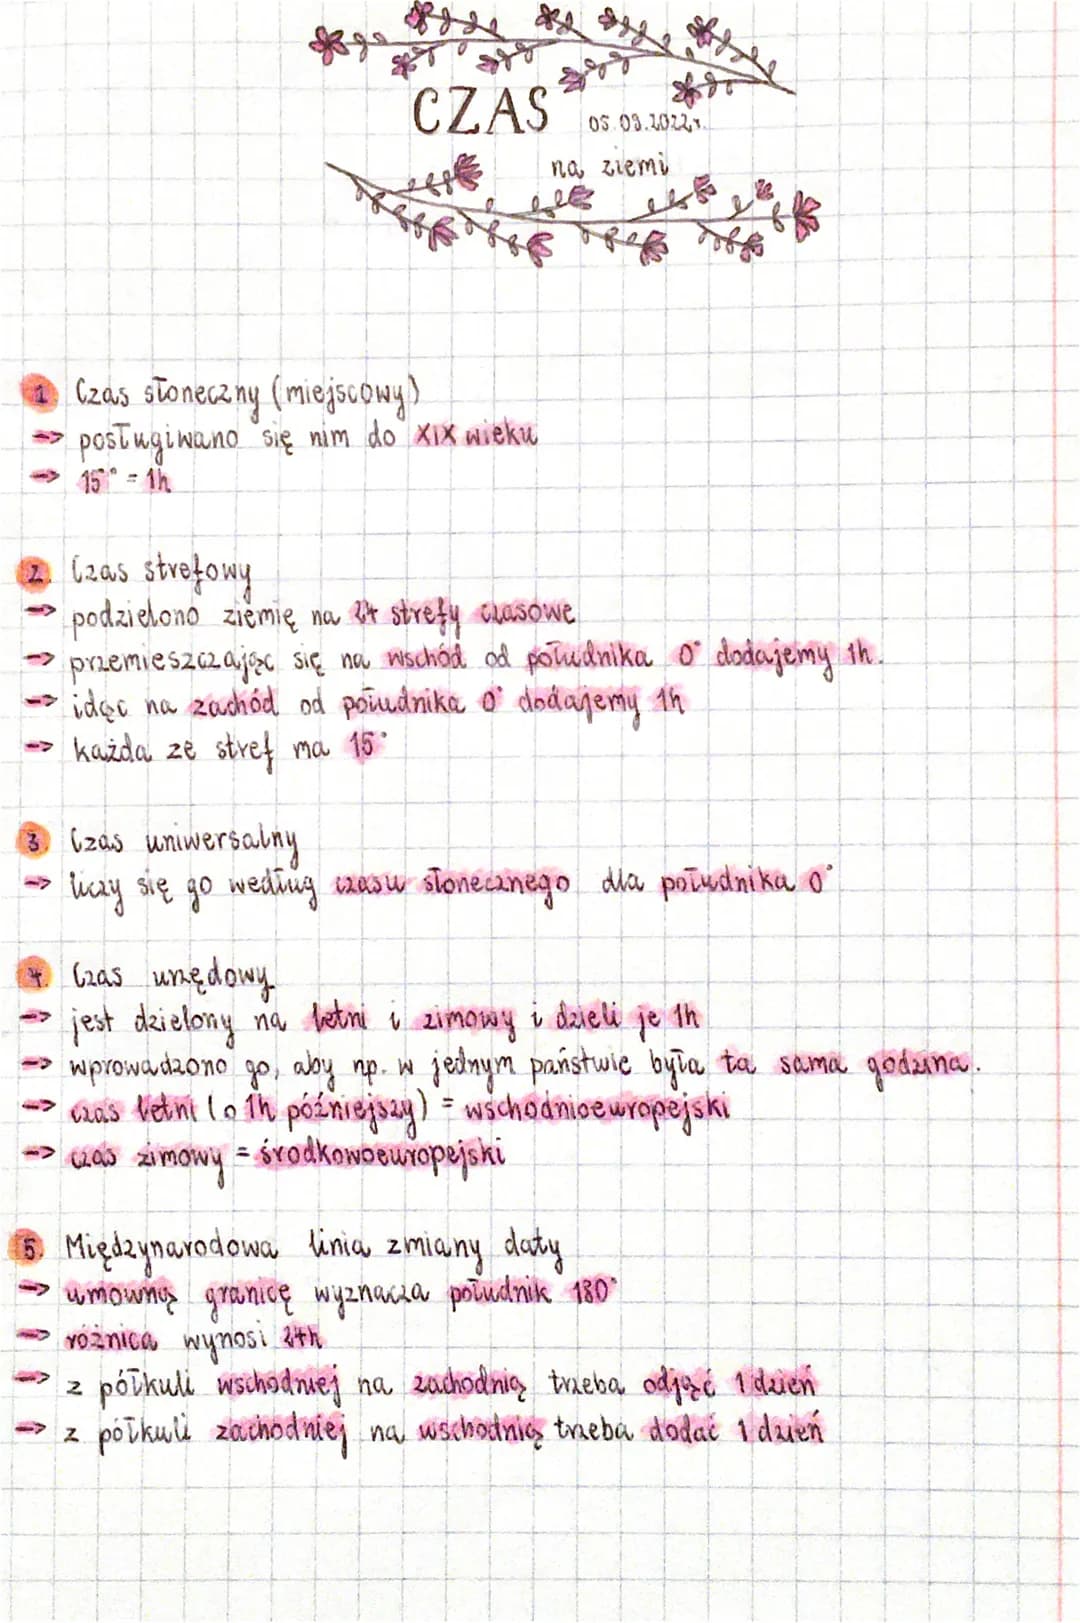 CZAS 05.03.2022r.
na ziemi
1 Czas słoneczny (miejscowy)
→ posługiwano się nim do XIX wieku
→ 15° = 1h
2. Czas strefowy
→ podzielono ziemię na 24 strefy czasowe
→ przemieszczając się na wschód od południka 0° dodajemy 1h.
→ idąc na zachód od południka 0° dodajemy 1h
→ każda ze stref ma 15°
3. Czas uniwersalny
→ liczy się go według czasu słonecznego dla południka 0°
4. Czas urzędowy
→ jest dzielony na letni i zimowy i dzieli je 1h
→ wprowadzono go, aby np. w jednym państwie była ta sama godzina.
→ czas letni (o 1h późniejszy) = wschodnioeuropejski
→ czas zimowy = środkowoeuropejski
5. Międzynarodowa linia zmiany daty
→ umowną granicę wyznacza południk 180°
→ różnica wynosi 24h
→ z półkuli wschodniej na zachodnią trzeba odjąć 1 dzień
→ z półkuli zachodniej na wschodnią trzeba dodać 1 dzień